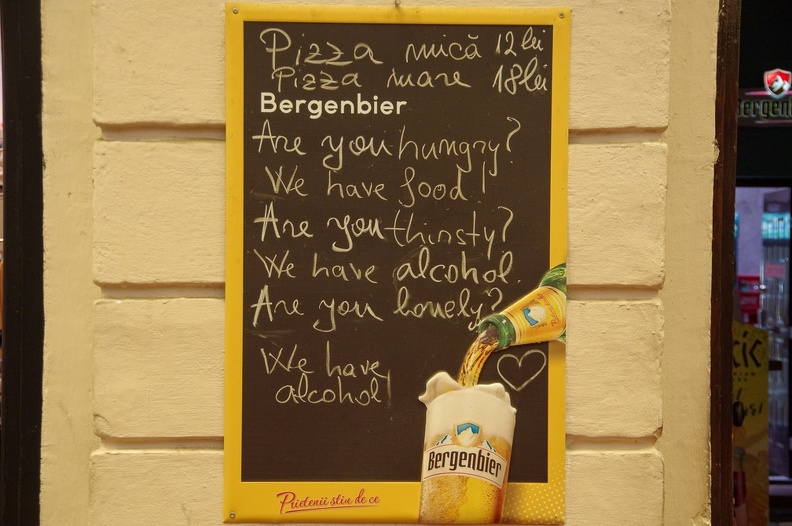 Pizza mică 12 lei
Pizza mare 18 lei
Bergenbier
Are you hungry?
We have food!
Are you thirsty?
We have alcohol.
Are you lonely?
We have
alcohol!
Bergenbier
Prietenii știu de ce